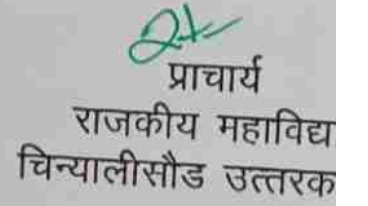 प्राचार्य
राजकीय महाविद्य
चिन्यालीसौड उत्तरक